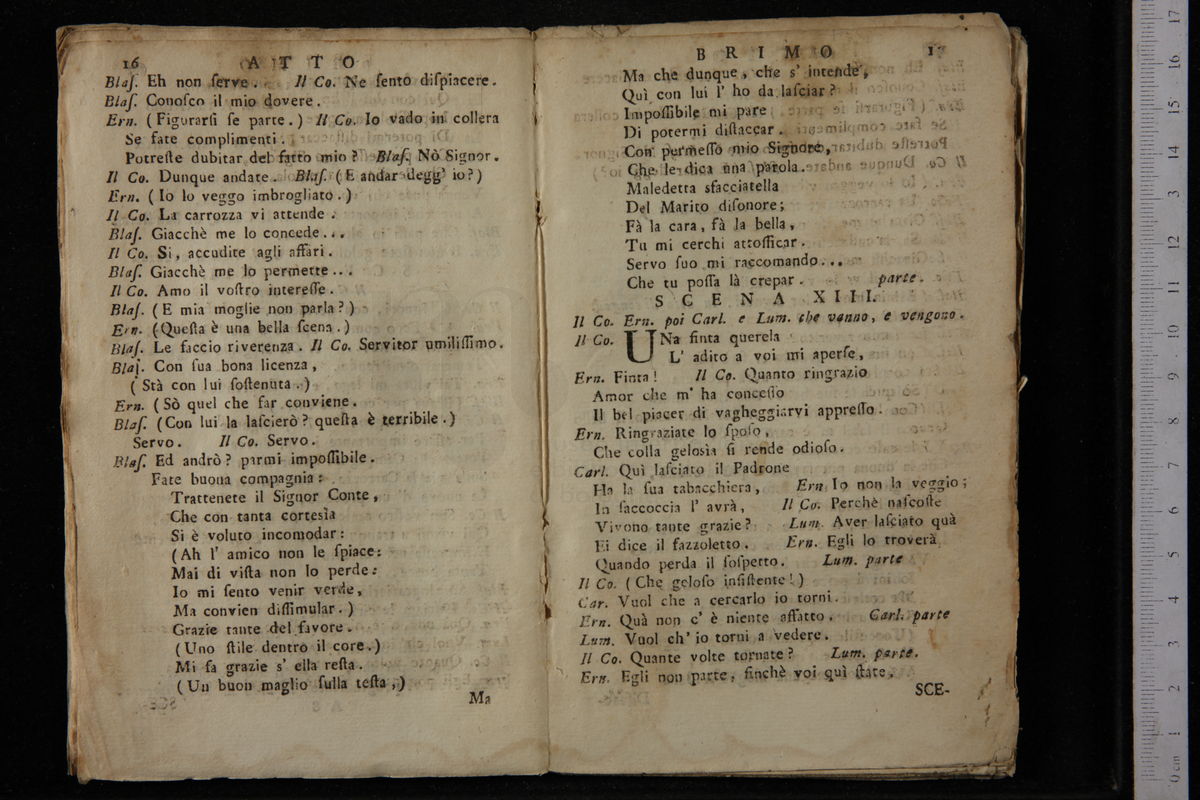 16 A T T O
Blaſ. Eh non ſerve. Il Co. Ne ſento diſpiacere.
Blaſ. Conoſco il mio dovere.
Ern. (Figurarſi ſe parte.) Il Co. Io vado in collera
Se fate complimenti.
Potreſte dubitar del fatto mio? Blaſ. Nò Signor.
Il Co. Dunque andate. Blaſ. (E andar degg' io?)
Ern. (Io lo veggo imbrogliato.)
Il Co. La carrozza vi attende.
Blaſ. Giacchè me lo concede...
Il Co. Si, accudite agli affari.
Blaſ. Giacchè me lo permette...
Il Co. Amo il voſtro intereſſe.
Blaſ. (E mia moglie non parla?)
Ern. (Queſta è una bella ſcena.)
Blaſ. Le faccio riverenza. Il Co. Servitor umiliſſimo.
Blaſ. Con ſua bona licenza,
(Stà con lui ſoſtenuta.)
Ern. (Sò quel che far conviene.
Blaſ. (Con lui la laſcierò? queſta è terribile.)
Servo. Il Co. Servo.
Blaſ. Ed andrò? parmi impoſſibile.
Fate buona compagnia:
Trattenete il Signor Conte,
Che con tanta cortesìa
Si è voluto incomodar:
(Ah l' amico non le ſpiace:
Mai di viſta non lo perde:
Io mi ſento venir verde,
Ma convien diſſimular.)
Grazie tante del favore.
(Uno ſtile dentro il core.)
Mi fa grazie s' ella reſta.
(Un buon maglio ſulla teſta,)
Ma
B R I M O 17
Ma che dunque, che s' intende,
Quì con lui l' ho da laſciar?
Impoſſibile mi pare
Di potermi diſtaccar.
Con permeſſo mio Signore,
Che le dica una parola.
Maledetta sfacciatella
Del Marito diſonore;
Fà la cara, fà la bella,
Tu mi cerchi attoſſicar.
Servo ſuo mi raccomando...
Che tu poſſa là crepar. parte.
S C E N A XIII.
Il Co. Ern. poi Carl. e Lum. che vanno, e vengono.
Il Co. UNa finta querela
L' adito a voi mi aperſe,
Ern. Finta! Il Co. Quanto ringrazio
Amor che m' ha conceſſo
Il bel piacer di vagheggiarvi appreſſo.
Ern. Ringraziate lo ſpoſo,
Che colla gelosìa ſi rende odioſo.
Carl. Quì laſciato il Padrone
Ha la ſua tabacchiera, Ern. Io non la veggio;
In ſaccoccia l' avrà, Il Co. Perchè naſcoſte
Vivono tante grazie? Lum. Aver laſciato quà
Ei dice il fazzoletto. Ern. Egli lo troverà
Quando perda il ſoſpetto. Lum. parte
Il Co. (Che geloſo inſiſtente!)
Car. Vuol che a cercarlo io torni.
Ern. Quà non c' è niente affatto. Carl. parte
Lum. Vuol ch' io torni a vedere.
Il Co. Quante volte tornate? Lum. parte.
Ern. Egli non parte, finchè voi quì ſtate,
SCE-